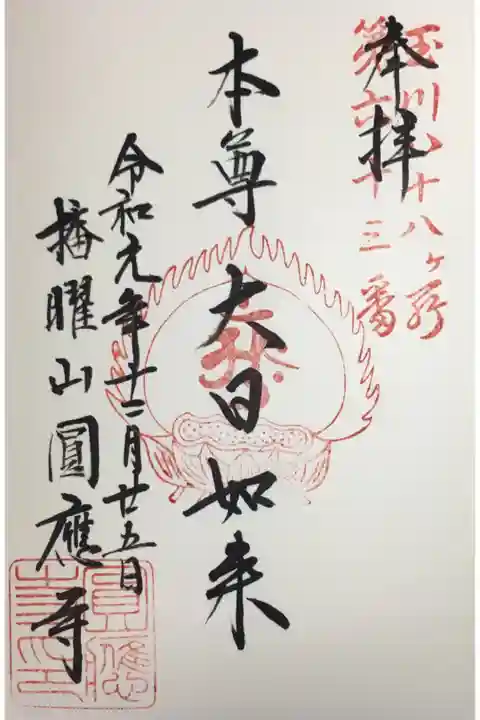 奉拝
玉川八十八ヶ所
第六十三番
本尊 大日如来
令和元年十二月廿五日
播曜山圓應寺
圓應寺印